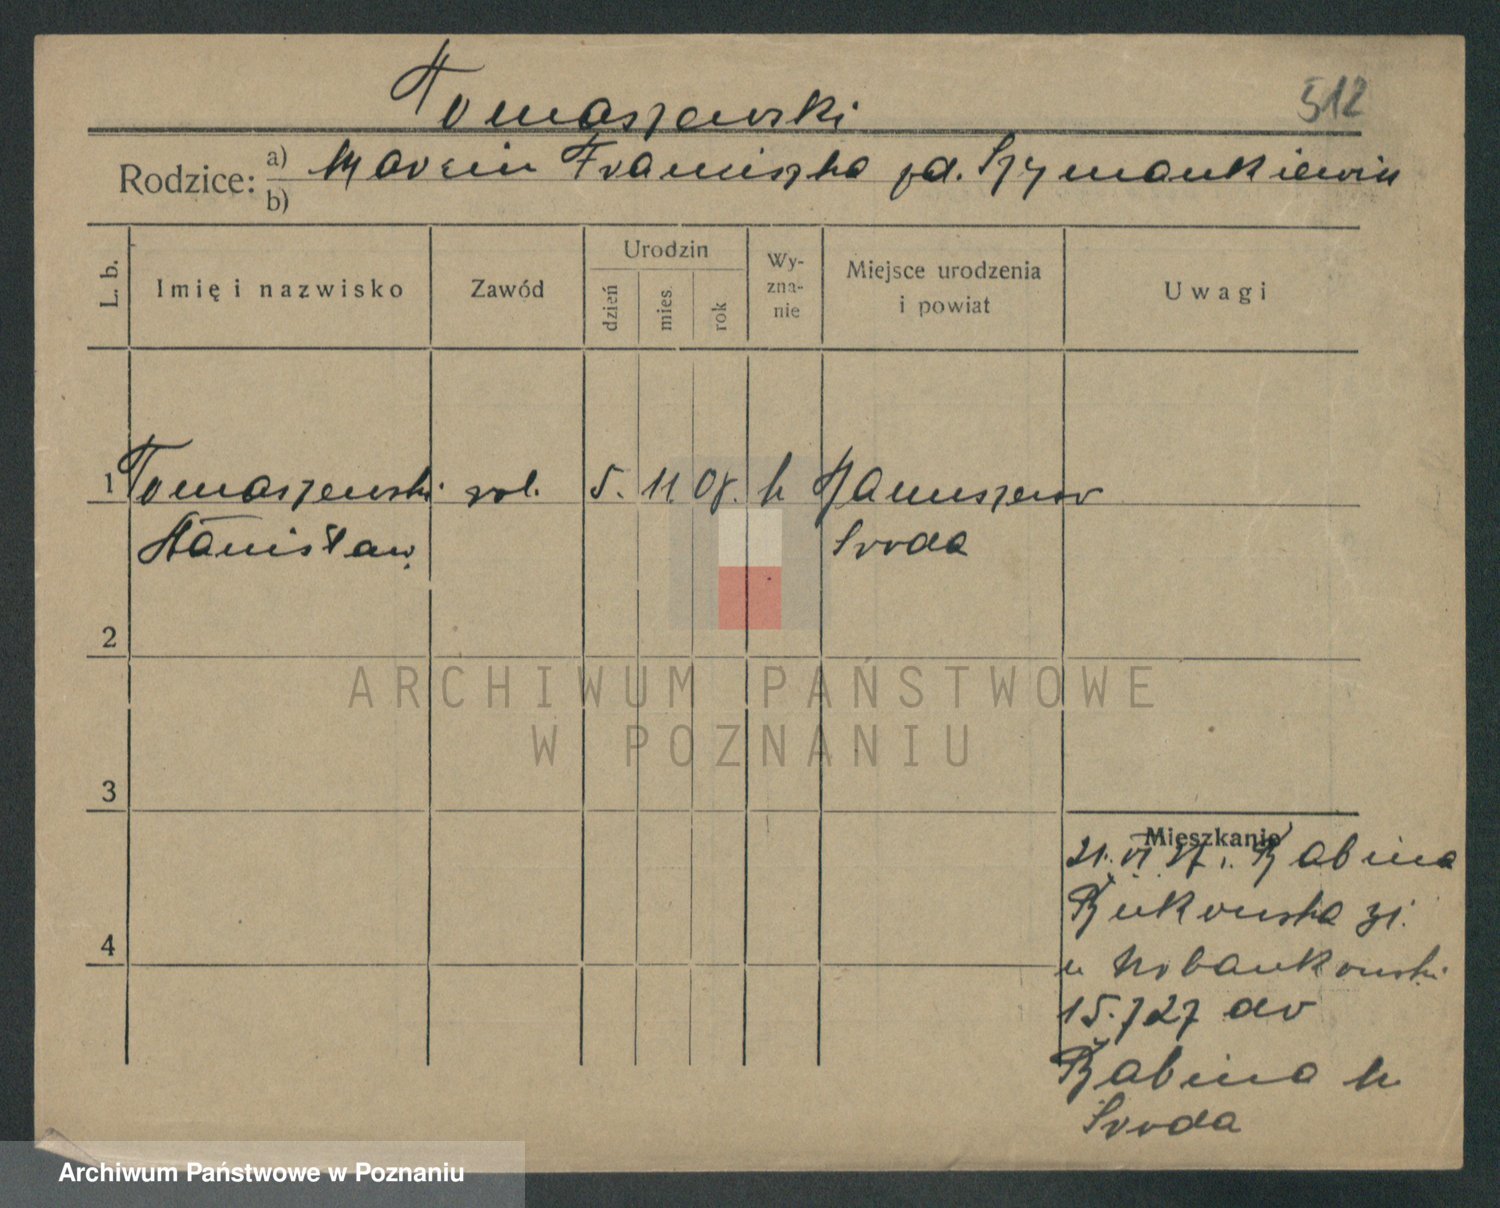 Tomaszewski
512
Rodzice: a) Marcin Franciszka zd. Szymankiewicz
b)
L. b.
Imię i nazwisko
Zawód
Urodzin
dzień
mies.
rok
Wy-
zna-
nie
Miejsce urodzenia
i powiat
Uwagi
1 Tomaszewski rol. 5. 11. 08. k Januszewo
Stanisław. Sroda
2
3
4
Mieszkanie
21. VI 27. Babina
Bukowska
u
15.7 27 do
Babina k
Sroda
ARCHIWUM PAŃSTWOWE
W POZNANIU
Archiwum Państwowe w Poznaniu